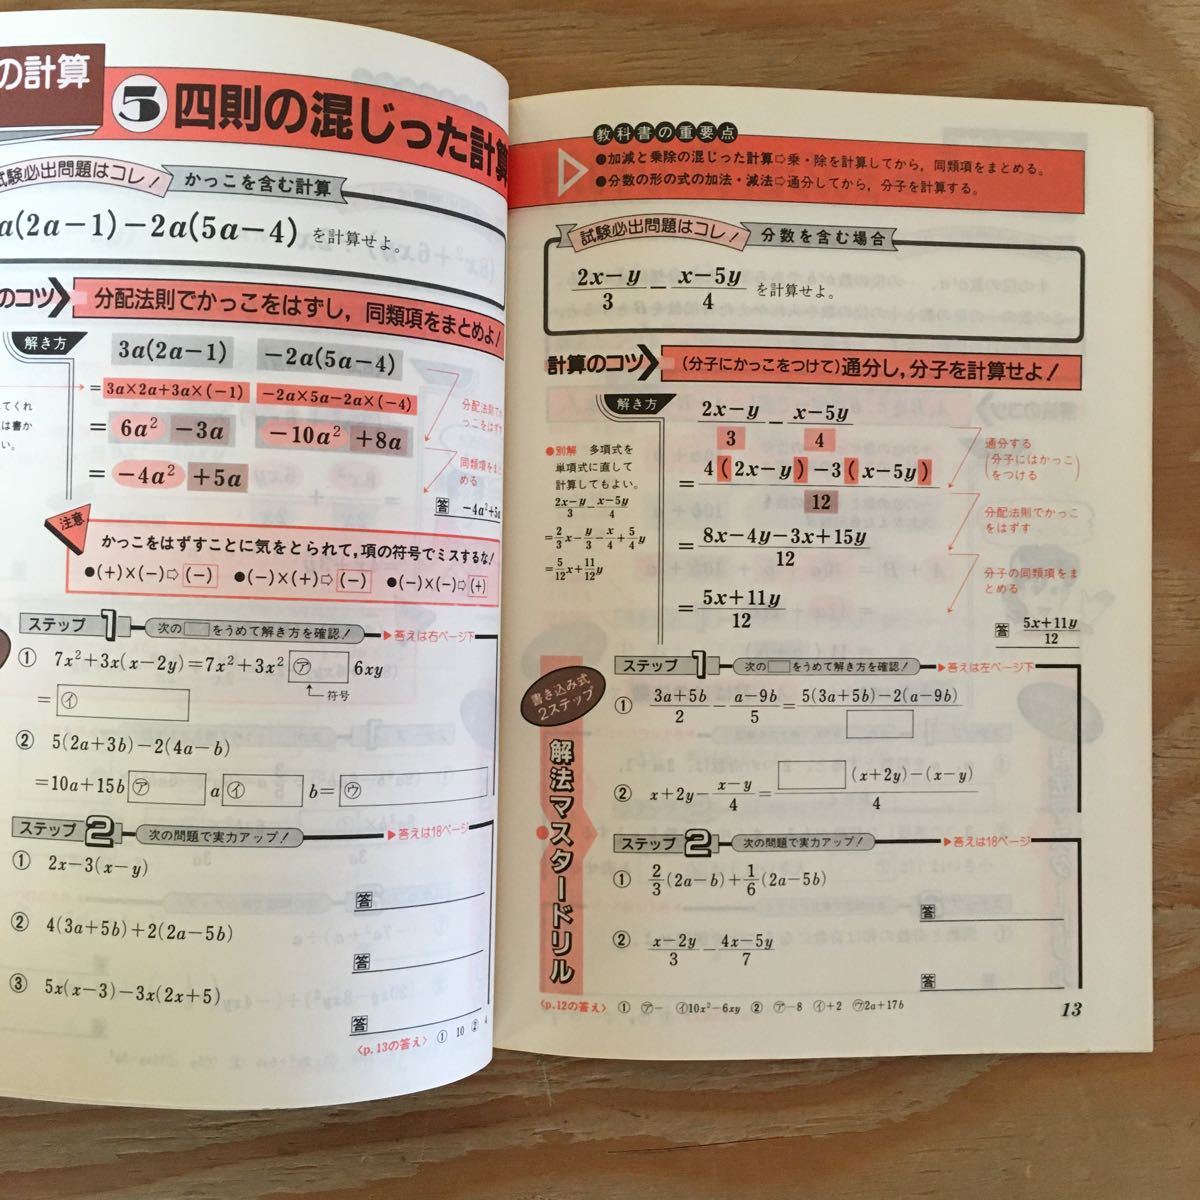 の計算
⑤ 四則の混じった計算
試験必出問題はコレ! かっこを含む計算
a(2a−1)−2a(5a−4) を計算せよ。
のコツ 分配法則でかっこをはずし,同類項をまとめよ!
解き方
3a(2a−1) −2a(5a−4)
=3a×2a+3a×(−1) −2a×5a−2a×(−4)
=6a² −3a −10a² +8a
=−4a² +5a
分配法則でか
っこをはずす
同類項をまと
める
答 −4a²+5a
てくれ
は書か
い。
注意
かっこをはずすことに気をとられて,項の符号でミスするな!
●(+)×(−)⇨(−) ●(−)×(+)⇨(−) ●(−)×(−)⇨(+)
ステップ1 次の□をうめて解き方を確認! ▶答えは右ページ下
① 7x²+3x(x−2y)=7x²+3x² ㋐ 6xy
符号
= ㋑
② 5(2a+3b)−2(4a−b)
=10a+15b ㋐ a ㋑ b= ㋒
ステップ2 次の問題で実力アップ! ▶答えは18ページ
① 2x−3(x−y)
答
② 4(3a+5b)+2(2a−5b)
答
③ 5x(x−3)−3x(2x+5)
答
〈p.13の答え〉 ① 10 ② 4
教科書の重要点
●加減と乗除の混じった計算⇨乗・除を計算してから,同類項をまとめる。
●分数の形の式の加法・減法⇨通分してから,分子を計算する。
試験必出問題はコレ! 分数を含む場合
(2x−y)/3 − (x−5y)/4 を計算せよ。
計算のコツ (分子にかっこをつけて)通分し,分子を計算せよ!
解き方
(2x−y)/3 − (x−5y)/4
=(4(2x−y)−3(x−5y))/12
=(8x−4y−3x+15y)/12
=(5x+11y)/12
通分する
(分子にはかっこ
をつける)
分配法則でかっこ
をはずす
分子の同類項をま
とめる
答 (5x+11y)/12
●別解 多項式を
単項式に直して
計算してもよい。
(2x−y)/3 − (x−5y)/4
=2/3x−y/3−x/4+5/4y
=5/12x+11/12y
書き込み式
2ステップ
解法マスタードリル
ステップ1 次の□をうめて解き方を確認! ▶答えは左ページ下
① (3a+5b)/2 − (a−9b)/5 = (5(3a+5b)−2(a−9b))/□
② x+2y−(x−y)/4 = (□(x+2y)−(x−y))/4
ステップ2 次の問題で実力アップ! ▶答えは18ページ
① 2/3(2a−b)+1/6(2a−5b)
答
② (x−2y)/3 − (4x−5y)/7
答
〈p.12の答え〉 ① ㋐− ㋑10x²−6xy ② ㋐−8 ㋑+2 ㋒2a+17b
13